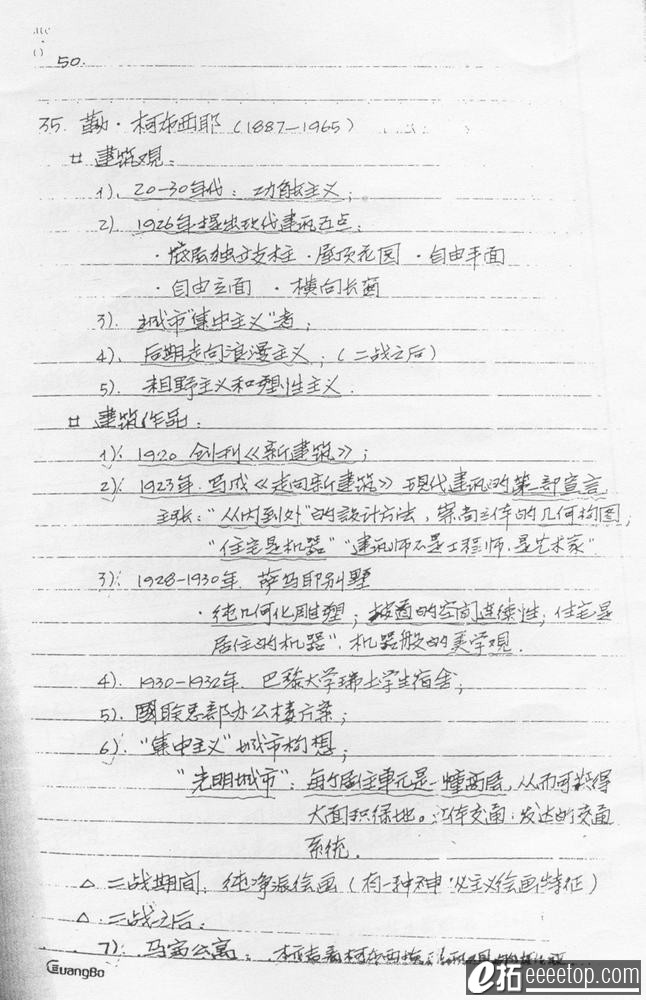 50.
35. 勒·柯布西耶 (1887-1965)
建筑观:
1). 20-30年代: 功能主义;
2) 1926年提出现代建筑五点:
· 底层独立支柱 · 屋顶花园 · 自由平面
· 自由立面 · 横向长窗
3). 城市"集中主义"者;
4). 后期走向浪漫主义; (二战之后)
5). 粗野主义和塑性主义.
建筑作品:
1): 1920 创刊《新建筑》;
2): 1923年. 写成《走向新建筑》现代建筑的第一部宣言.
主张: "从内到外"的设计方法, 崇尚立体的几何构图,
"住宅是机器" "建筑师不是工程师, 是艺术家"
3): 1928-1930年. 萨马耶别墅
· 纯几何化雕塑; 的空间连续性; 住宅是
居住的机器", 机器般的美学观.
4). 1930-1932年. 巴黎大学瑞士学生宿舍;
5). 國联总部办公楼方案;
6). "集中主义"城市构想;
"光明城市": 每个居住单元是一幢两层, 从而可获得
大面积绿地。立体交通: 发达的交通
系统.
△ 二战期间: 纯净派绘画 (有一种神必主义绘画特征)
△ 二战之后:
7): 马寨公寓: 标志着柯布西
GuangBo
e拓 eeeetop.com